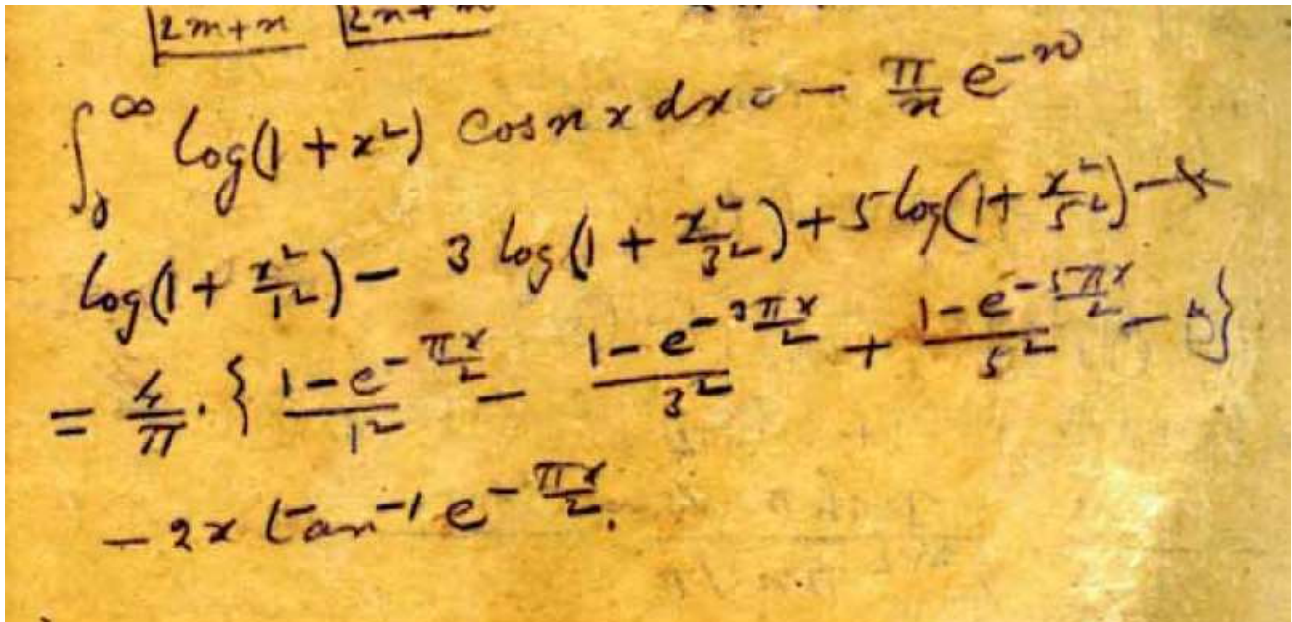 |2m+n |2n+m
∫₀^∞ log(1 + x²) cos nx dx = − π/n e^{−n}
log(1 + x²/1²) − 3 log(1 + x²/3²) + 5 log(1 + x²/5²) − &c
= 4/π · { (1 − e^{−πx/2})/1² − (1 − e^{−3πx/2})/3² + (1 − e^{−5πx/2})/5² − &c }
− 2x tan⁻¹ e^{−πx/2}.